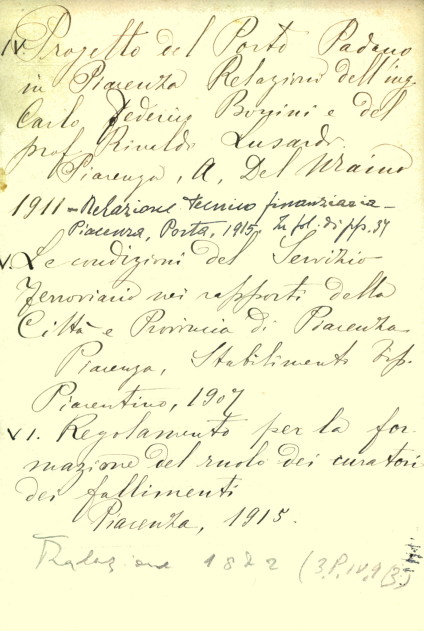 IV. Progetto del Porto Padano
in Piacenza Relazioni dell'ing.
Carlo Federico Bonini e del
prof. Rinaldo Lusardi.
Piacenza, A. Del Maino
1911 – Relazione tecnico finanziaria –
Piacenza, Porta, 1915. In fol. di pp. 37
V. Le condizioni del Servizio
Ferroviario nei rapporti della
Città e Provincia di Piacenza
Piacenza, Stabilimento Tip.
Piacentino, 1907
VI. Regolamento per la for-
mazione del ruolo dei curatori
dei fallimenti
Piacenza, 1915.
1882 (3.P.IV.9(3.)